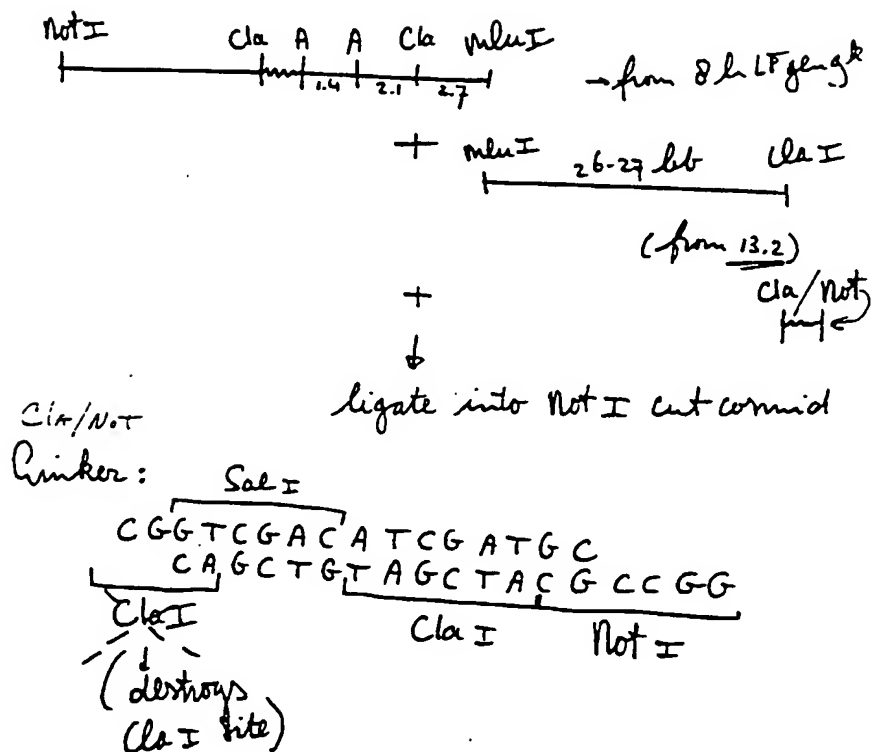 Not I Cla A A Cla mlu I
1.4 2.1 2.7
→ from 8 h LF
+ mlu I 26-27 kb Cla I
(from 13.2)
Cla/Not
+
↓
ligate into Not I cut cosmid
Cla/Not
Linker:
Sal I
C G G T C G A C A T C G A T G C
C A G C T G T A G C T A C G C C G G
Cla I Cla I Not I
(destroys
Cla I site)